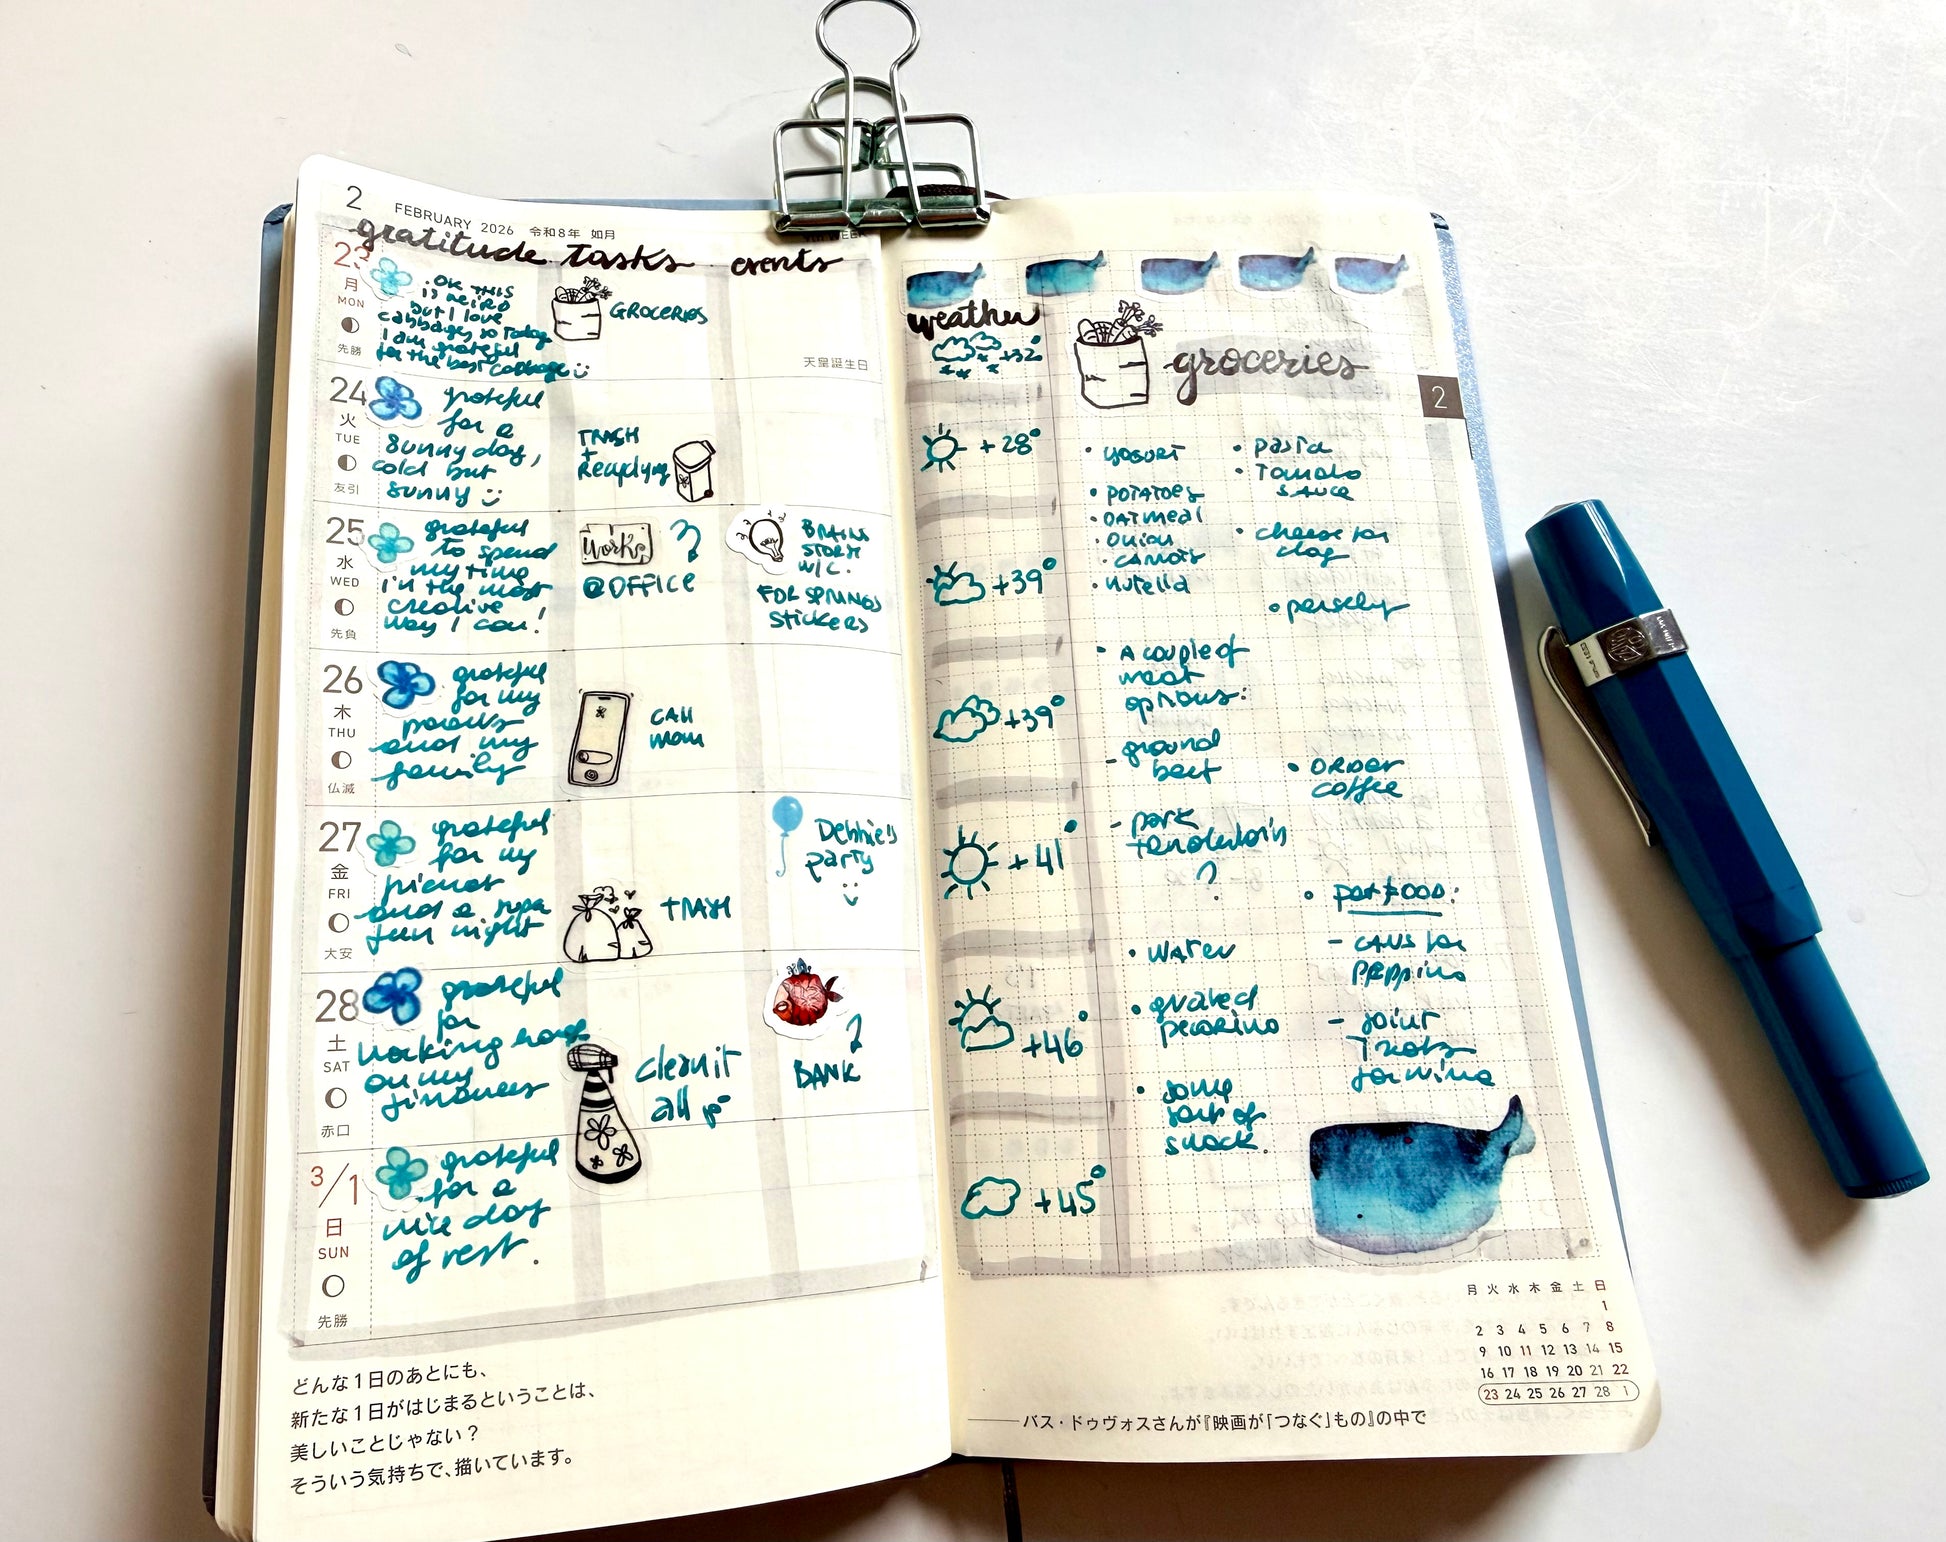 2 FEBRUARY 2026 令和8年 如月
gratitude tasks events
23
月
MON
先勝
.OK THIS
is weird
but I love
cabbages, so today
I am grateful
for the best cabbage
GROCERIES
天皇誕生日
24
火
TUE
友引
grateful
for a
sunny day,
cold but
sunny
TRASH
+
Recycling
25
水
WED
先負
grateful
to spend
my time
in the most
creative
way I can!
Work
@OFFICE
BRAIN
STORM
W/C.
FOR SPRING
Stickers
26
木
THU
仏滅
grateful
for my
parents
and my
family
CALL
mom
27
金
FRI
大安
grateful
for my
friends
and a super
fun night
TRASH
Debbie's
party
28
土
SAT
赤口
grateful
for
working
on my
finances
clean it
all up
BANK
3/1
日
SUN
先勝
grateful
for a
nice day
of rest.
どんな1日のあとにも、
新たな1日がはじまるということは、
美しいことじゃない?
そういう気持ちで、描いています。
weather
+32°
+28°
+39°
+39°
+41°
+46°
+45°
groceries
2
• yogurt
• POTATOES
• OATmeal
• Onion
• CARROTS
• nutella
• A couple of
meat
options:
- ground
beef
- pork
tenderloin
?
• WATER
• grated
pecorino
• some
sort of
snack.
• pasta
• Tomato
SAUCE
• cheese for
dog
• parsley
• ORDER
coffee
• PET FOOD:
- CANS for
Peppino
- JOINT
Treats
for Nina
月 火 水 木 金 土 日
1
2 3 4 5 6 7 8
9 10 11 12 13 14 15
16 17 18 19 20 21 22
23 24 25 26 27 28 1
——バス・ドゥヴォスさんが『映画が「つなぐ」もの』の中で